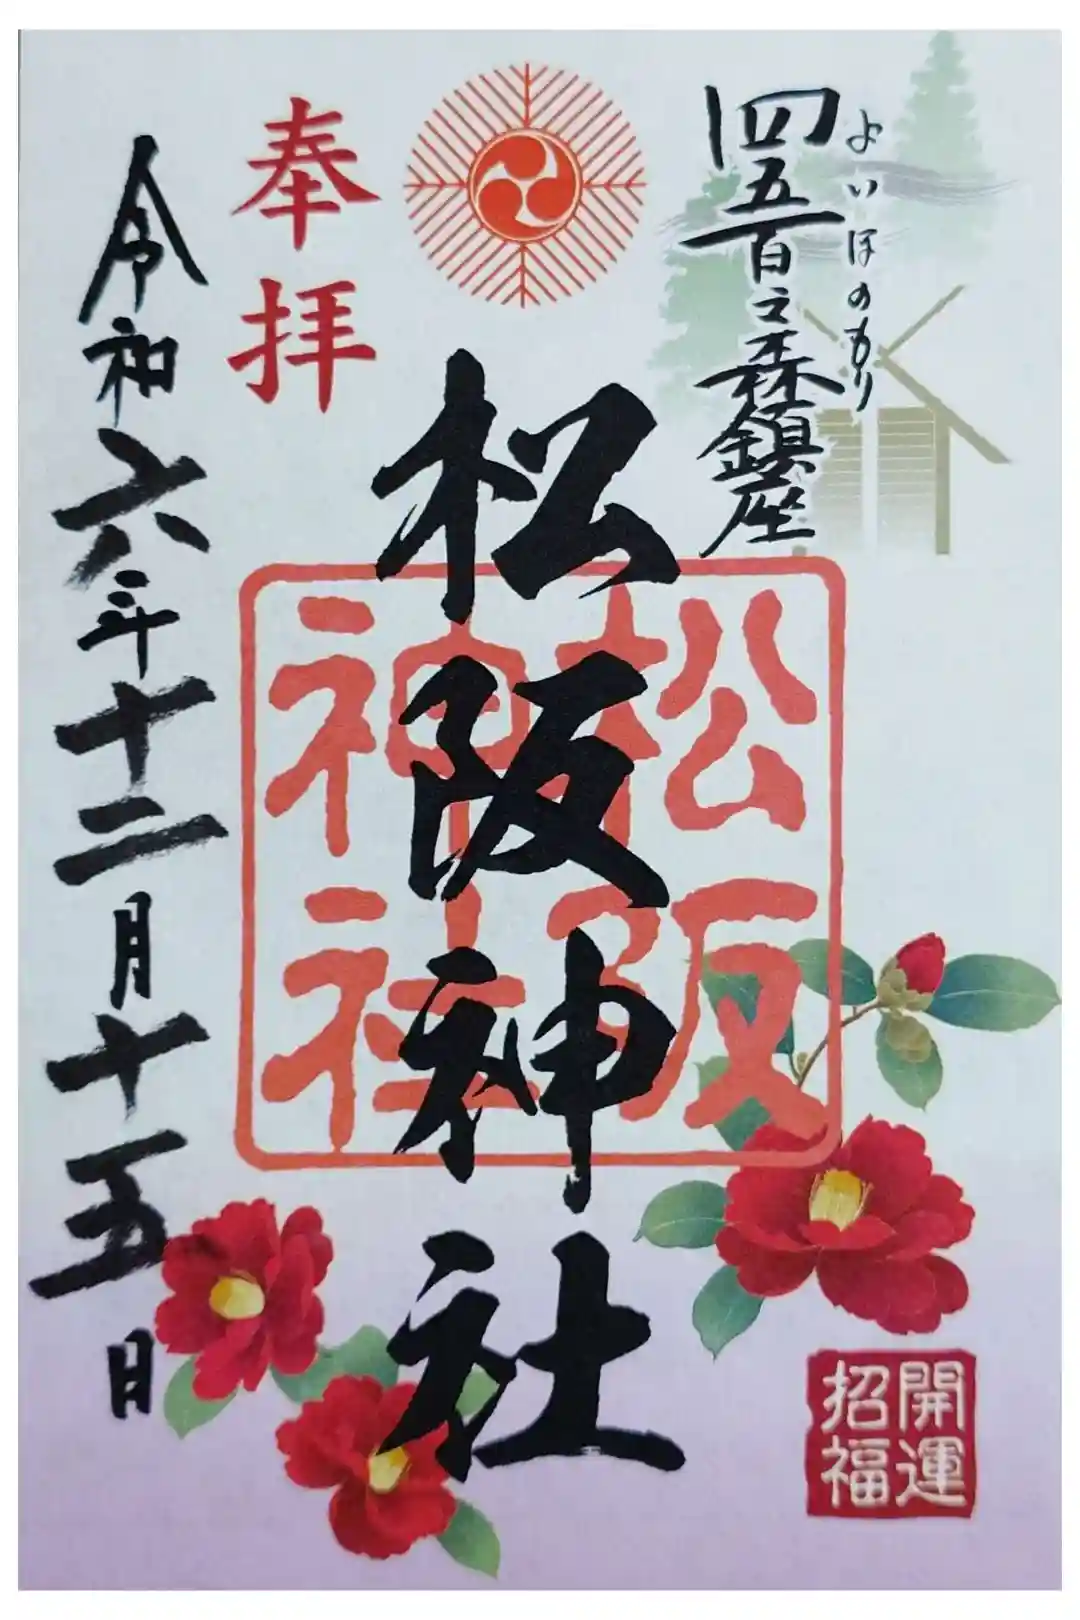 よいほのもり
四五百之森鎮座
奉拝
松阪神社
松阪
神社
令和六年十二月十五日
開運
招福